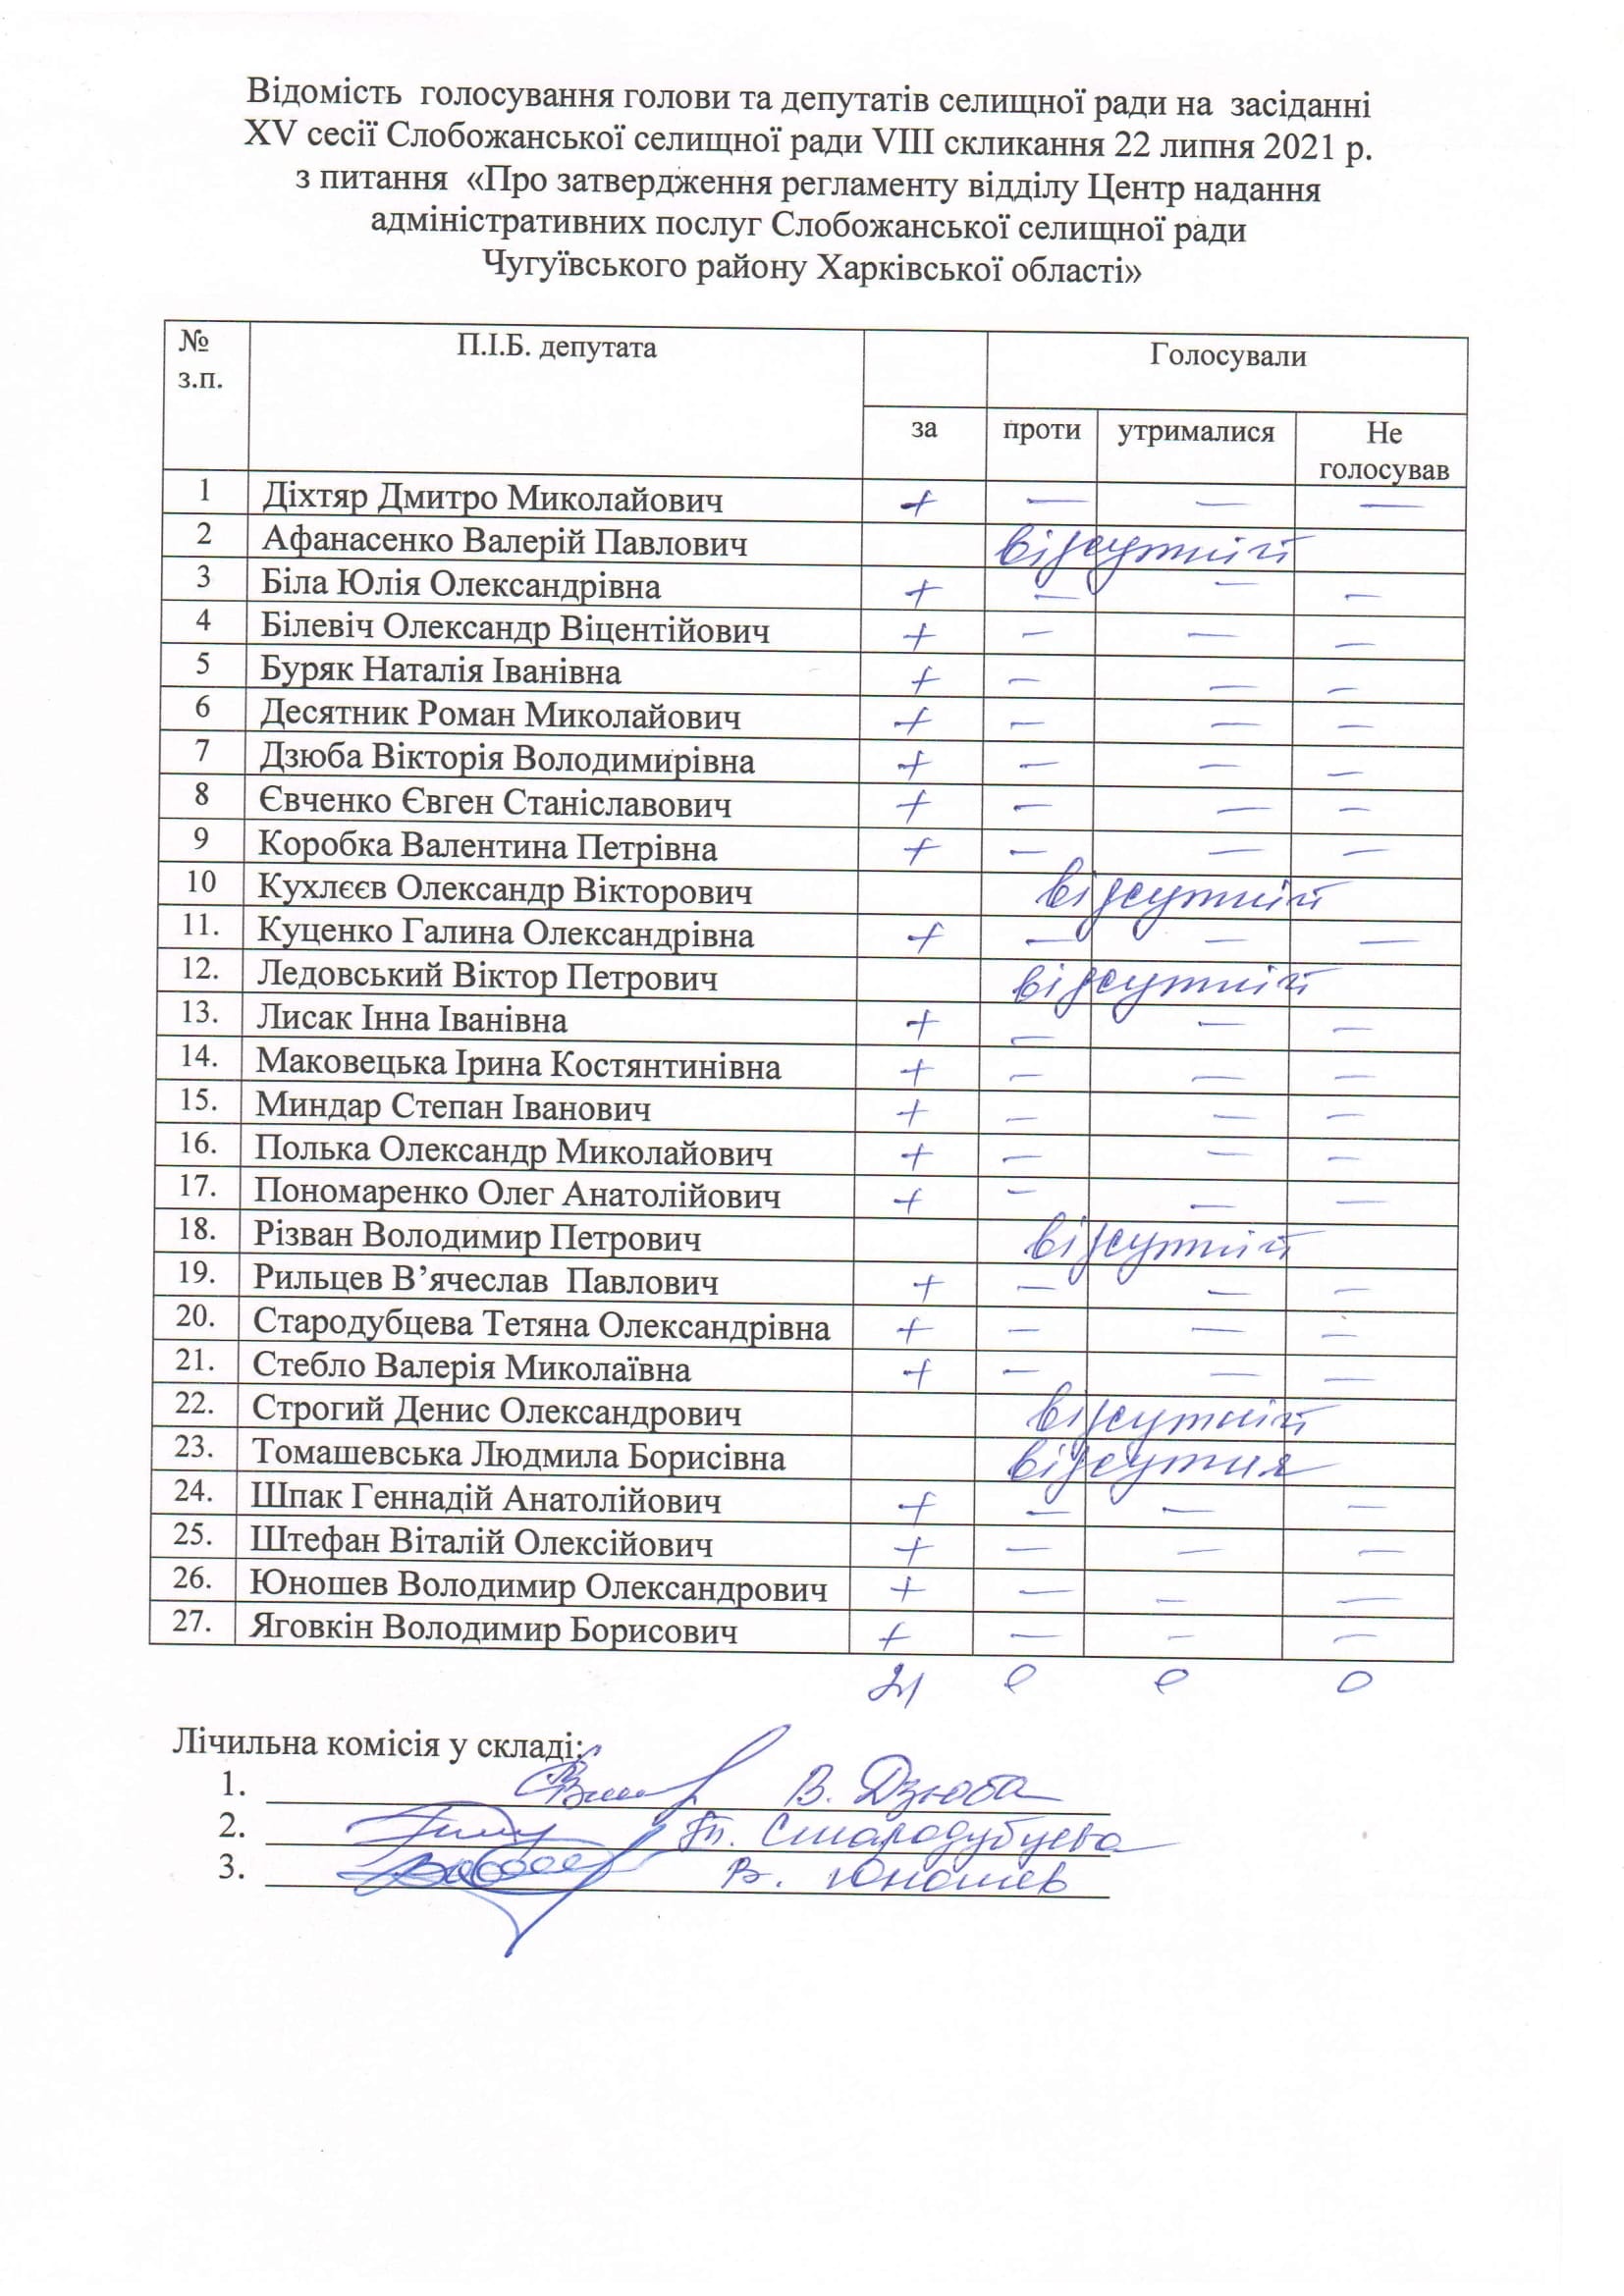 Відомість голосування голови та депутатів селищної ради на засіданні
XV сесії Слобожанської селищної ради VIII скликання 22 липня 2021 р.
з питання «Про затвердження регламенту відділу Центр надання
адміністративних послуг Слобожанської селищної ради
Чугуївського району Харківської області»
№ з.п. П.І.Б. депутата Голосували
за проти утрималися Не голосував
1 Діхтяр Дмитро Миколайович + — — —
2 Афанасенко Валерій Павлович відсутній
3 Біла Юлія Олександрівна + — — —
4 Білевіч Олександр Віцентійович + — — —
5 Буряк Наталія Іванівна + — — —
6 Десятник Роман Миколайович + — — —
7 Дзюба Вікторія Володимирівна + — — —
8 Євченко Євген Станіславович + — — —
9 Коробка Валентина Петрівна + — — —
10 Кухлєєв Олександр Вікторович відсутній
11. Куценко Галина Олександрівна + — — —
12. Ледовський Віктор Петрович відсутній
13. Лисак Інна Іванівна + — — —
14. Маковецька Ірина Костянтинівна + — — —
15. Миндар Степан Іванович + — — —
16. Полька Олександр Миколайович + — — —
17. Пономаренко Олег Анатолійович + — — —
18. Різван Володимир Петрович відсутній
19. Рильцев В’ячеслав Павлович + — — —
20. Стародубцева Тетяна Олександрівна + — — —
21. Стебло Валерія Миколаївна + — — —
22. Строгий Денис Олександрович відсутній
23. Томашевська Людмила Борисівна відсутня
24. Шпак Геннадій Анатолійович + — — —
25. Штефан Віталій Олексійович + — — —
26. Юношев Володимир Олександрович + — — —
27. Яговкін Володимир Борисович + — — —
21 0 0 0
Лічильна комісія у складі:
1. В. Дзюба
2. Т. Стародубцева
3. В. Юношев